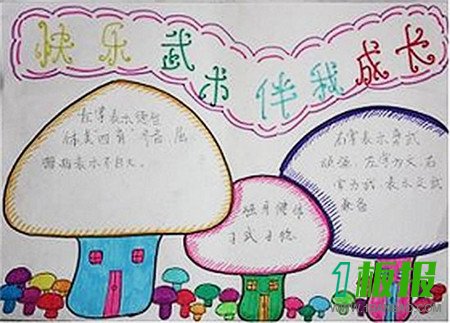 快乐武术伴我成长
掌表示德智
体美四育"齐备,屈
拇指表示不自大。
身健体
表示勇武
顽强,左掌为文,右
为武,表示文武
兼备
1板报